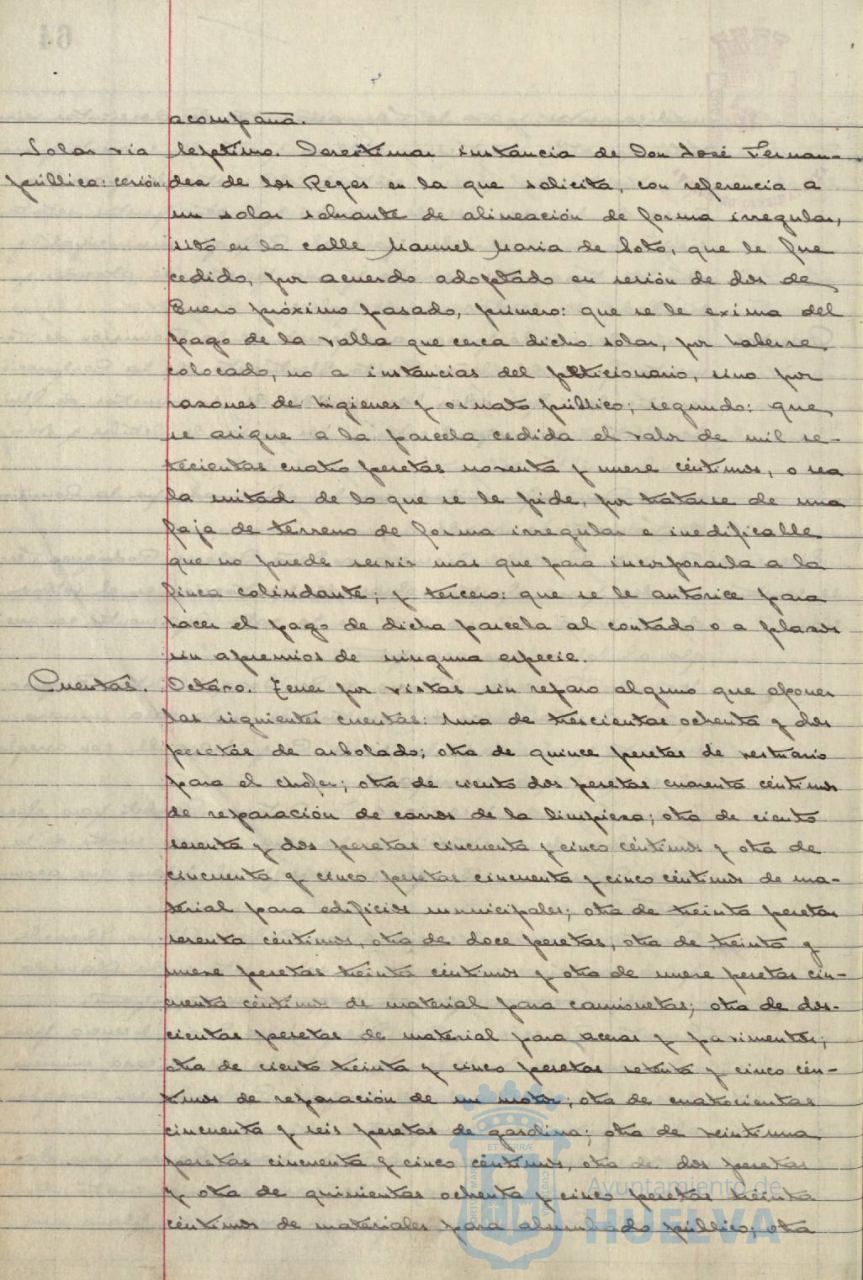 acompaña.
Solar vía pública: cesión.
Septimo. Desestimar instancia de Don José Fernan-
dez de los Reyes en la que solicita, con referencia a
un solar sobrante de alineación de forma irregular,
sito en la calle Manuel Maria de Soto, que le fue
cedido, por acuerdo adoptado en sesión de dos de
Enero próximo pasado, primero: que se le exima del
pago de la valla que cerca dicho solar, por haberse
colocado, no a instancias del peticionario, sino por
razones de higienes y ornato público; segundo: que
se asigne a la parcela cedida el valor de mil se-
tecientas cuatro pesetas noventa y nueve céntimos, o sea
la mitad de lo que se le pide, por tratarse de una
faja de terreno de forma irregular e inedificable
que no puede servir mas que para incorporarla a la
finca colindante; y tercero: que se le autorice para
hacer el pago de dicha parcela al contado o a plazos
sin apremios de ninguna especie.
Cuentas.
Octavo. Tener por vistas sin reparo alguno que oponer
las siguientes cuentas: una de trescientas ochenta y dos
pesetas de arbolado; otra de quince pesetas de vestuario
para el chofer; otra de ciento dos pesetas cuarenta céntimos
de reparación de carros de la limpieza; otra de ciento
sesenta y dos pesetas cincuenta y cinco céntimos y otra de
cincuenta y cinco pesetas cincuenta y cinco céntimos de ma-
terial para edificios municipales; otra de treinta pesetas
sesenta céntimos, otra de doce pesetas, otra de treinta y
nueve pesetas treinta céntimos y otra de nueve pesetas cin-
cuenta céntimos de material para camionetas; otra de dos-
cientas pesetas de material para aceras y pavimentos;
otra de ciento treinta y cinco pesetas setenta y cinco cén-
timos de reparación de un motor; otra de cuatrocientas
cincuenta y seis pesetas de gasolina; otra de veintiuna
pesetas cincuenta y cinco céntimos, otra de dos pesetas
y otra de quinientas ochenta y cinco pesetas treinta
céntimos de materiales para alumbrado público; otra
Ayuntamiento de
HUELVA